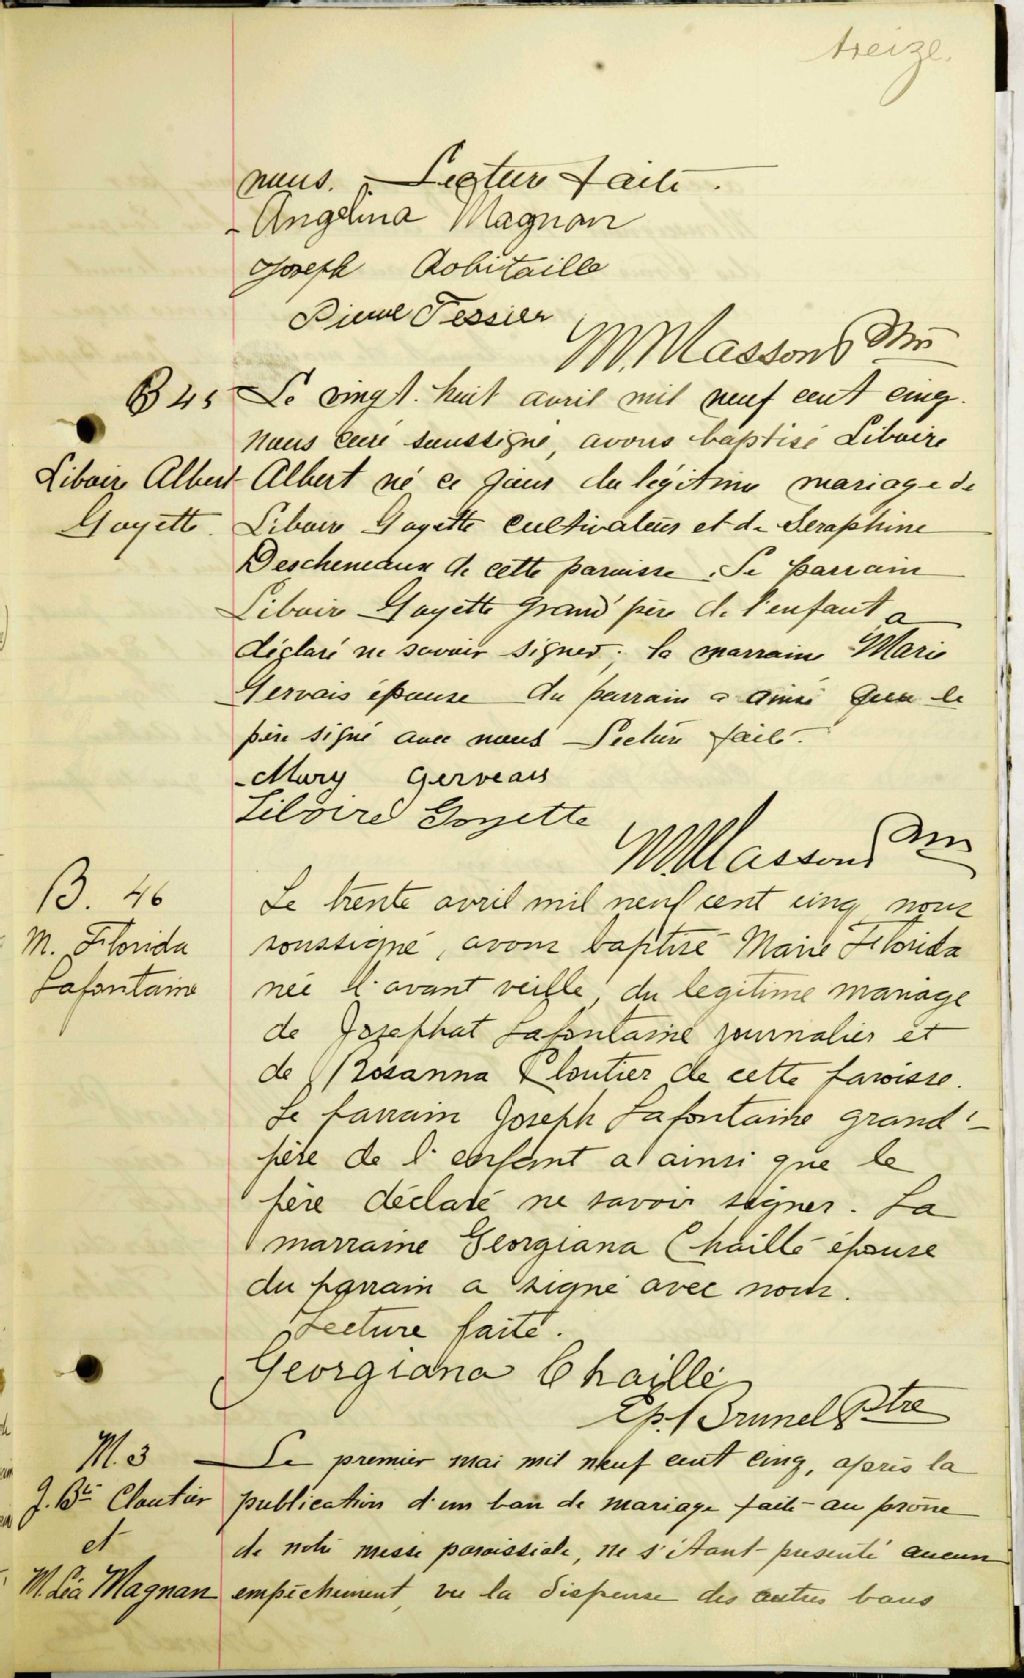 treize.
nous. Lecture faite.
Angelina Magnan
Joseph Robitaille
Pierre Tessier
M. Masson Ptre
B 45
Liboire Albert
Goyette.
Le vingt-huit avril mil neuf cent cinq
nous curé soussigné, avons baptisé Liboire
Albert né ce jour du légitime mariage de
Liboire Goyette cultivateur et de Seraphine
Descheneaux de cette paroisse. Le parrain
Liboire Goyette grand'père de l'enfant a
déclaré ne savoir signer; la marraine Marie
Gervais épouse du parrain a ainsi que le
père signé avec nous Lecture faite.
Mary Gerveais
Liboire Goyette
M. Masson Ptre
B. 46
M. Florida
Lafontaine
Le trente avril mil neuf cent cinq nous
soussigné, avons baptisé Marie Florida
née l'avant veille, du legitime mariage
de Josephat Lafontaine journalier et
de Rosanna Cloutier de cette paroisse.
Le parrain Joseph Lafontaine grand'-
père de l'enfant a ainsi que le
père déclaré ne savoir signer. La
marraine Georgiana Chaillé épouse
du parrain a signé avec nous.
Lecture faite.
Georgiana Chaillé
Ep. Brunel Ptre
M. 3
J. Bte Cloutier
et
M. Léa Magnan
Le premier mai mil neuf cent cinq, après la
publication d'un ban de mariage faite au prône
de notre messe paroissiale, ne s'étant présenté aucun
empêchement, vu la dispense des autres bans